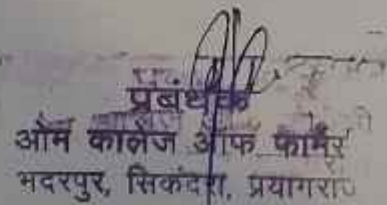 प्रबंधक
ओम कालेज ऑफ फार्मे
भदरपुर, सिकंदरा, प्रयागराज